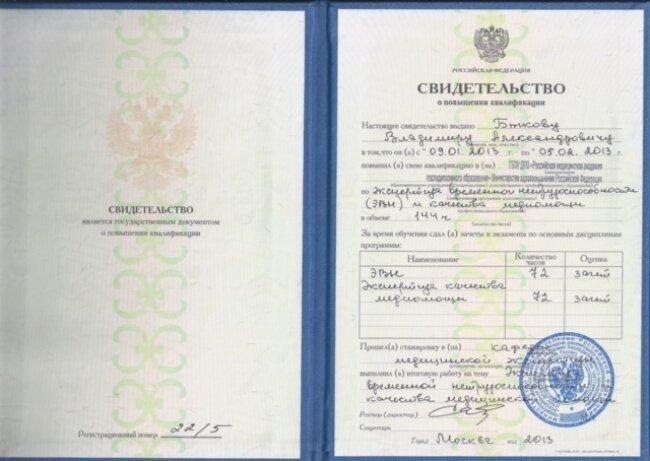 СВИДЕТЕЛЬСТВО
является государственным документом
о повышении квалификации
Регистрационный номер 22/5
РОССИЙСКАЯ ФЕДЕРАЦИЯ
СВИДЕТЕЛЬСТВО
о повышении квалификации
Настоящее свидетельство выдано
Владимиру Александровичу
в том, что он (а) с "09.01. 2013 г. по "05.02. 2013 г.
повышал (а) свою квалификацию в (на) ГБОУ ДПО «Российская медицинская академия
последипломного образования» Министерства здравоохранения Российской Федерации
по Экспертиза временной нетрудоспособности
(ЭВН) и качества медпомощи
в объеме 144 ч
За время обучения сдал (а) зачеты и экзамены по основным дисциплинам
программы:
Наименование Количество часов Оценка
ЭВН 72 зачет
Экспертиза качества
медпомощи 72 зачет
Прошел(а) стажировку в (на) кафедре
медицинской экспертизы
выполнил (а) итоговую работу на тему
временной нетрудоспособности и
качества медицинской помощи
Ректор (директор)
Секретарь
Город Москва год 2013